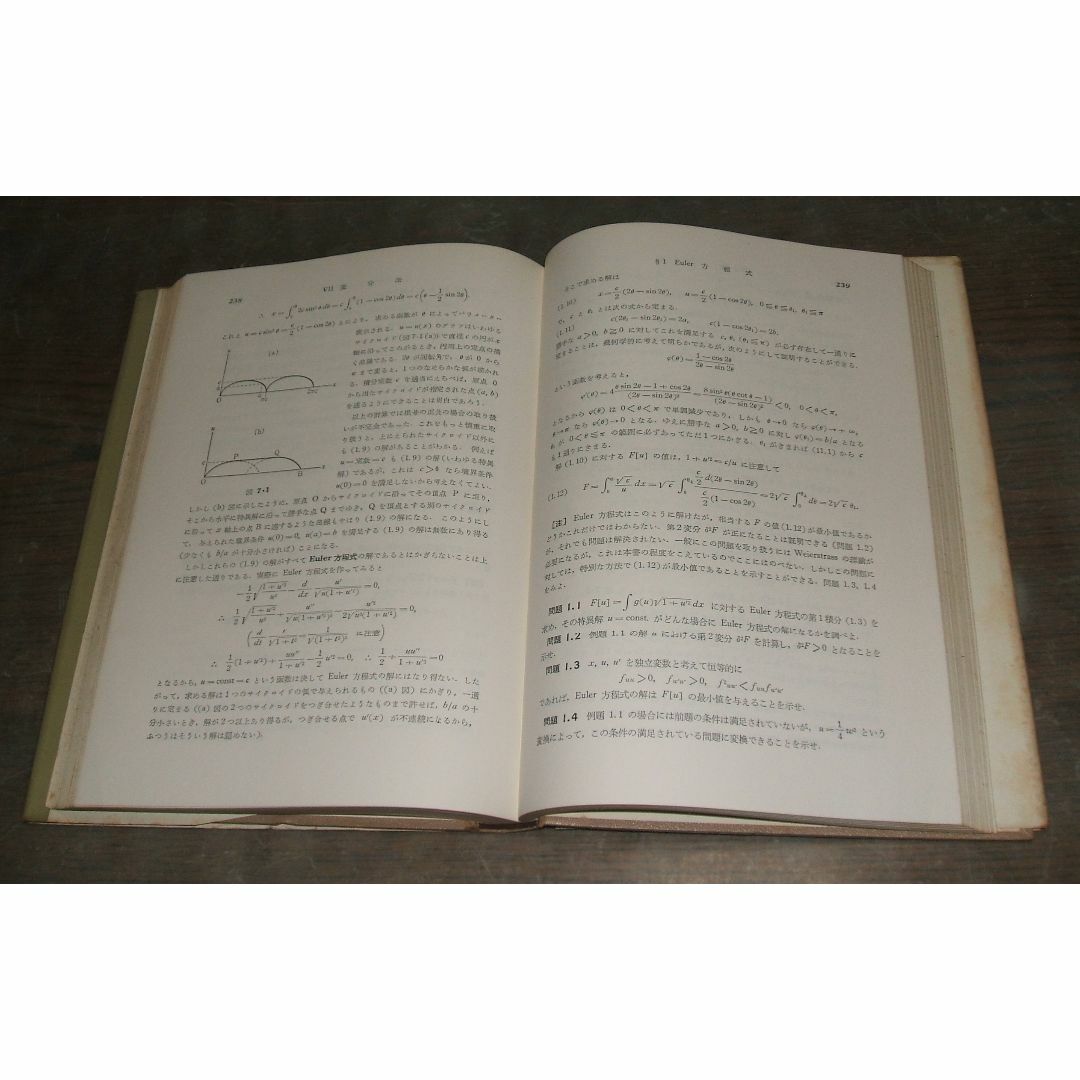 238
VII 変 分 法
∴ x=∫₀^θ 2c sin²θ dθ=c∫₀^θ (1−cos 2θ)dθ=c(θ−1/2 sin 2θ).
これと u=c sin²θ=c/2(1−cos 2θ) とにより, 求める函数が θ によってパラメーター
表示される. u=u(x) のグラフはいわゆる
サイクロイド(図7・1(a))で直径 c の円が x
軸に沿ってころがるとき, 円周上の定点の描
く曲線である. 2θ が回転角で, θ が 0 から
π まで変ると, 1つのなめらかな弧が描かれ
る. 積分定数 c を適当にえらべば, 原点 O
から出たサイクロイドが指定された点 (a, b)
を通るようにできることは明白であろう.
以上の計算では根号の正負の場合の取り扱
いが不完全であった. これをもっと慎重に取
り扱うと, 上にえられたサイクロイド以外に
も (1.9) の解があることがわかる. 例えば
u=定数=c も (1.9) の解(いわゆる特異
解)であるが, これは c>0 なら境界条件
u(0)=0 を満足しないから考えなくてよい.
(a)
(b)
図 7・1
しかし (b) 図に示したように, 原点 O からサイクロイドに沿ってその頂点 P に至り,
そこから水平に特異解に沿って勝手な点 Q までゆき, Q を頂点とする別のサイクロイド
に沿って x 軸上の点 B に達するような曲線もやはり (1.9) の解になる. このようにし
て, 与えられた境界条件 u(0)=0, u(a)=b を満足する (1.9) の解は無数にあり得る
(少なくも b/a が十分小さければ) ことになる.
しかしこれらの (1.9) の解がすべて Euler 方程式の解であるとはかぎらないことは上
に注意した通りである. 実際に Euler 方程式を作ってみると
−1/2 √((1+u′²)/u³) − d/dx u′/√(u(1+u′²)) =0,
∴ 1/2 √((1+u′²)/u³) + u″/√(u(1+u′²)³) − u′²/(2√(u³(1+u′²))) =0,
(d/dt t/√(1+t²) = 1/√(1+t²)³ に注意)
∴ 1/2(1+u′²)+uu″/(1+u′²)−1/2 u′²=0, ∴ 1/2+uu″/(1+u′²)=0
となるから, u=const=c という函数は決して Euler 方程式の解にはなり得ない. した
がって, 求める解は1つのサイクロイドの弧で与えられるもの ((a) 図) にかぎり, 一通
りに定まる ((a) 図の2つのサイクロイドをつぎ合せたようなものまで許せば, b/a の十
分小さいとき, 解が2つ以上あり得るが, つぎ合せる点で u′(x) が不連続になるから,
ふつうはそういう解は認めない).
§1 Euler 方 程 式
239
そこで求める解は
(1.10) x=c/2(2θ−sin 2θ), u=c/2(1−cos 2θ), 0≦θ≦θ₁, θ₁≦π
で, c と θ₁ とは次の式から定まる.
(1.11) c(2θ₁−sin 2θ₁)=2a, c(1−cos 2θ₁)=2b.
勝手な a>0, b≧0 に対してこれを満足する c, θ₁ (θ₁≦π) が必ず存在して一通りに
定まることは, 幾何学的に考えて明らかであるが, 次のようにして証明することができる.
φ(θ)=(1−cos 2θ)/(2θ−sin 2θ)
という函数を考えると,
φ′(θ)=4 (θ sin 2θ−1+cos 2θ)/(2θ−sin 2θ)² = 8 sin²θ(θ cot θ−1)/(2θ−sin 2θ)² <0, 0<θ<π,
となるから φ(θ) は 0<θ<π で単調減少であり, しかも θ→0 なら φ(θ)→+∞,
θ→π なら φ(θ)→0 となる. ゆえに勝手な a>0, b≧0 に対し φ(θ₁)=b/a となる
θ₁ が, 0<θ≦π の範囲に必ずあってただ1つにかぎる. θ₁ がきまれば (11.1) から c
も1通りにきまる.
解 (1.10) に対する F[u] の値は, 1+u′²=c/u に注意して
(1.12) F=∫₀^a √c/u dx=√c ∫₀^θ₁ (c/2 d(2θ−sin 2θ))/(c/2 (1−cos 2θ)) =2√c ∫₀^θ₁ dθ=2√c θ₁.
[注] Euler 方程式はこのように解けたが, 相当する F の値(1.12)が最小値であるか
どうかこれだけではわからない. 第2変分 δ²F が正になることは証明できる (問題 1.2)
が, それでも問題は解決されない. 一般にこの問題を取り扱うには Weierstrass の理論が
必要になるが, これは本書の程度をこえているのでここにはのべない. しかしこの問題に
対しては, 特別な方法で (1.12) が最小値であることを示すことができる. 問題 1.3, 1.4
をみよ.
問題 1.1 F[u]=∫g(u)√(1+u′²) dx に対する Euler 方程式の第1積分 (1.3) を
求め, その特異解 u=const. がどんな場合に Euler 方程式の解になるかを調べよ.
問題 1.2 例題 1.1 の解 u における第2変分 δ²F を計算し, δ²F>0 となることを
示せ.
問題 1.3 x, u, u′ を独立変数と考えて恒等的に
f_uu>0, f_u′u′>0, f²_uu′<f_uu f_u′u′
であれば, Euler 方程式の解は F[u] の最小値を与えることを示せ.
問題 1.4 例題 1.1 の場合には前題の条件は満足されていないが, u=1/4 w² という
変換によって, この条件の満足されている問題に変換できることを示せ.